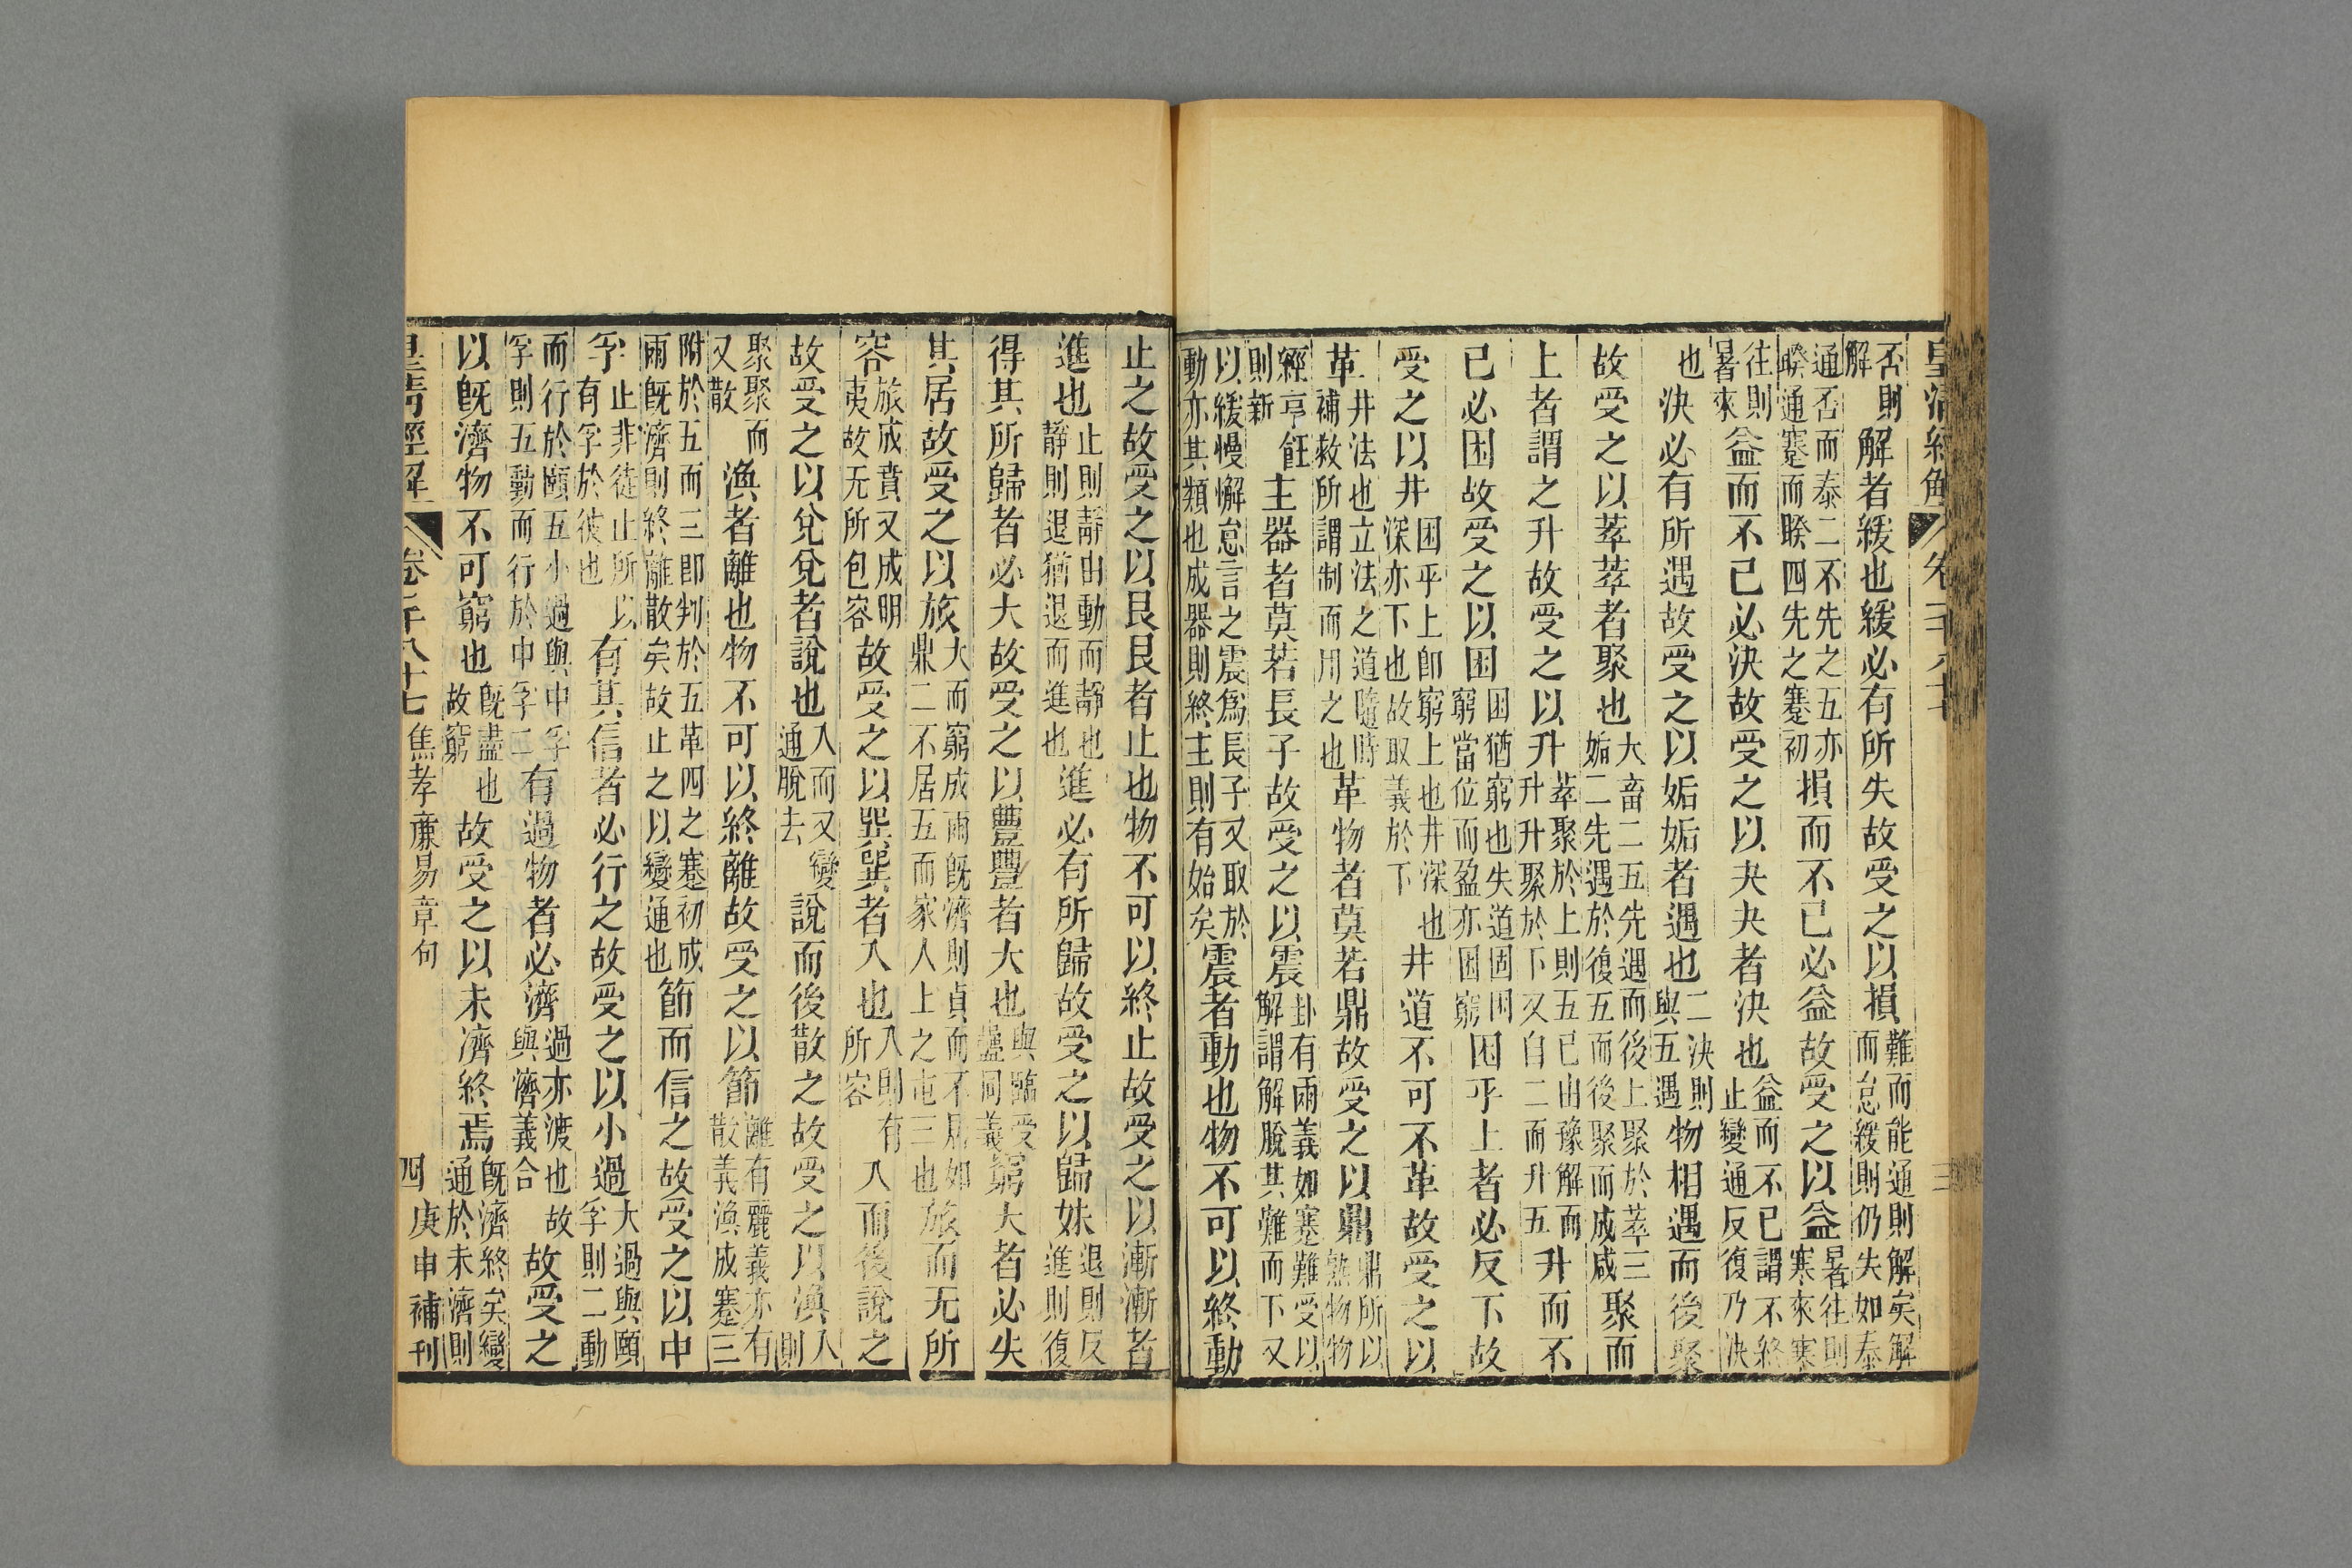 皇清經解 卷一千八十七 三
否則解解者緩也緩必有所失故受之以損難而能通則解矣解而怠緩則仍失如泰
通否而泰二不先之五亦睽通蹇而睽四先之蹇初損而不已必益故受之以益暑往則寒來寒
往則暑來益而不已必決故受之以夬夬者決也益而不已謂不終止變通反復乃決
也決必有所遇故受之以姤姤者遇也二決則與五遇物相遇而後聚
故受之以萃萃者聚也大畜二五先遇而後上聚於萃三姤二先遇於復五而後聚而成咸聚而
上者謂之升故受之以升萃聚於上則五已由豫解而升升聚於下又自二而升五升而不
已必困故受之以困困猶窮也失道固困窮當位而盈亦困窮困乎上者必反下故
受之以井困乎上卽窮上也井深也深亦下也故取義於下井道不可不革故受之以
革井法也立法之道隨時補救所謂制而用之也革物者莫若鼎故受之以鼎鼎所以熟物物
經亨飪則新主器者莫若長子故受之以震卦有兩義如蹇難受以解謂解脫其難而下又
以緩慢懈怠言之震爲長子又取於動亦其類也成器則終主則有始矣震者動也物不可以終動
止之故受之以艮艮者止也物不可以終止故受之以漸漸者
進也止則靜由動而靜也靜則退猶退而進也進必有所歸故受之以歸妹退則反進則復
得其所歸者必大故受之以豐豐者大也與臨受蠱同義窮大者必失
其居故受之以旅大而窮成兩旣濟則貞而不居如鼎二不居五而家人上之屯三也旅而无所
容旅成賁又成明夷故无所包容故受之以巽巽者入也入則有所容入而後說之
故受之以兌兌者說也入而又變通脫去說而後散之故受之以渙入則
聚聚而又散渙者離也物不可以終離故受之以節離有麗義亦有散義渙成蹇三
附於五而三卽判於五革四之蹇初成兩旣濟則終離散矣故止之以變通也節而信之故受之以中
孚止非徒止所以有孚於彼也有其信者必行之故受之以小過大過與頤孚則二動
而行於頤五小過與中孚孚則五動而行於中孚二有過物者必濟過亦渡也故與濟義合故受之
以旣濟物不可窮也旣盡也故窮故受之以未濟終焉旣濟終矣變通於未濟則
皇清經解 卷一千八十七焦孝廉易章句 四 庚申補刊